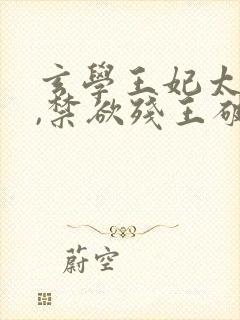 玄學王妃太
,禁欲殘王破
蔚空